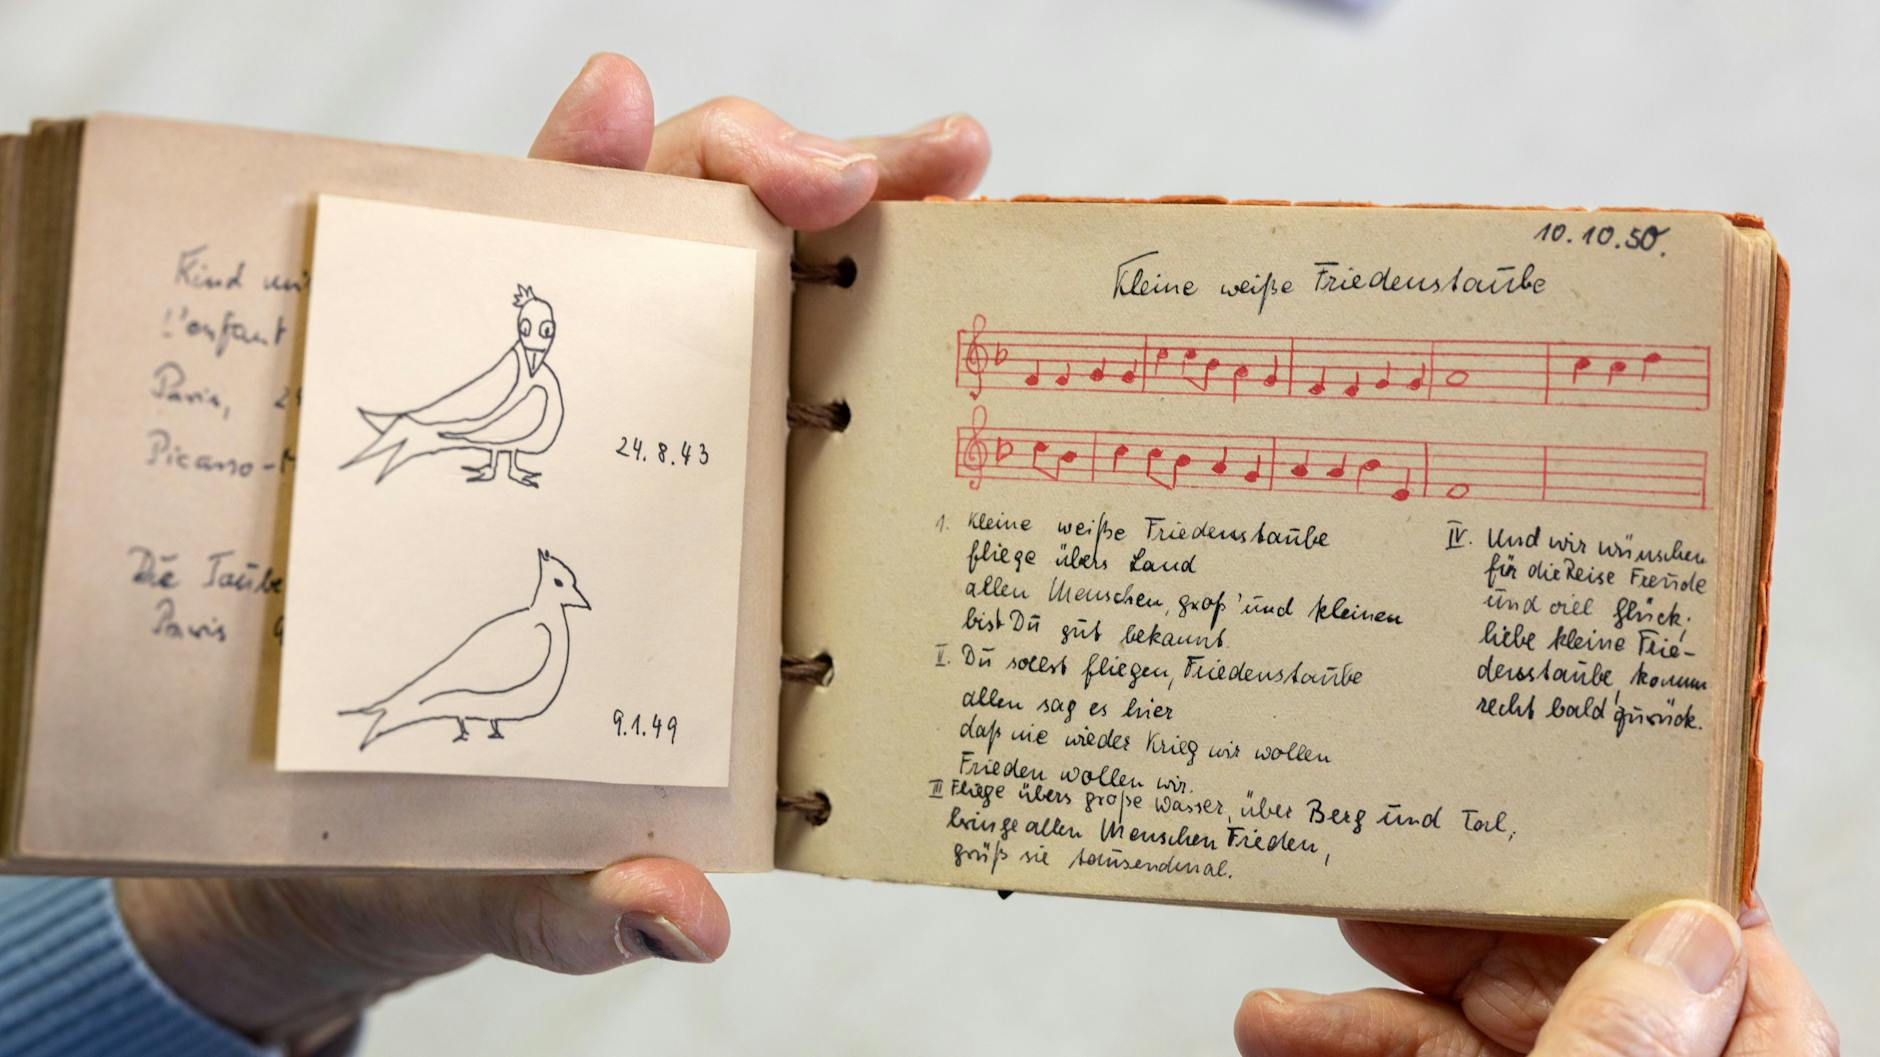 Kind
L'enfant
Paris,
Picasso-
Die Taube
Paris
24.8.43
9.1.49
10.10.50.
Kleine weiße Friedenstaube
1. Kleine weiße Friedenstaube
fliege übers Land
allen Menschen, groß' und kleinen
bist Du gut bekannt.
II. Du sollst fliegen, Friedenstaube
allen sag es hier
daß nie wieder Krieg wir wollen
Frieden wollen wir.
III Fliege übers große Wasser, über Berg und Tal,
bringe allen Menschen Frieden,
grüß sie tausendmal.
IV. Und wir wünschen
für die Reise Freude
und viel Glück;
liebe kleine Frie-
denstaube, komm
recht bald zurück.